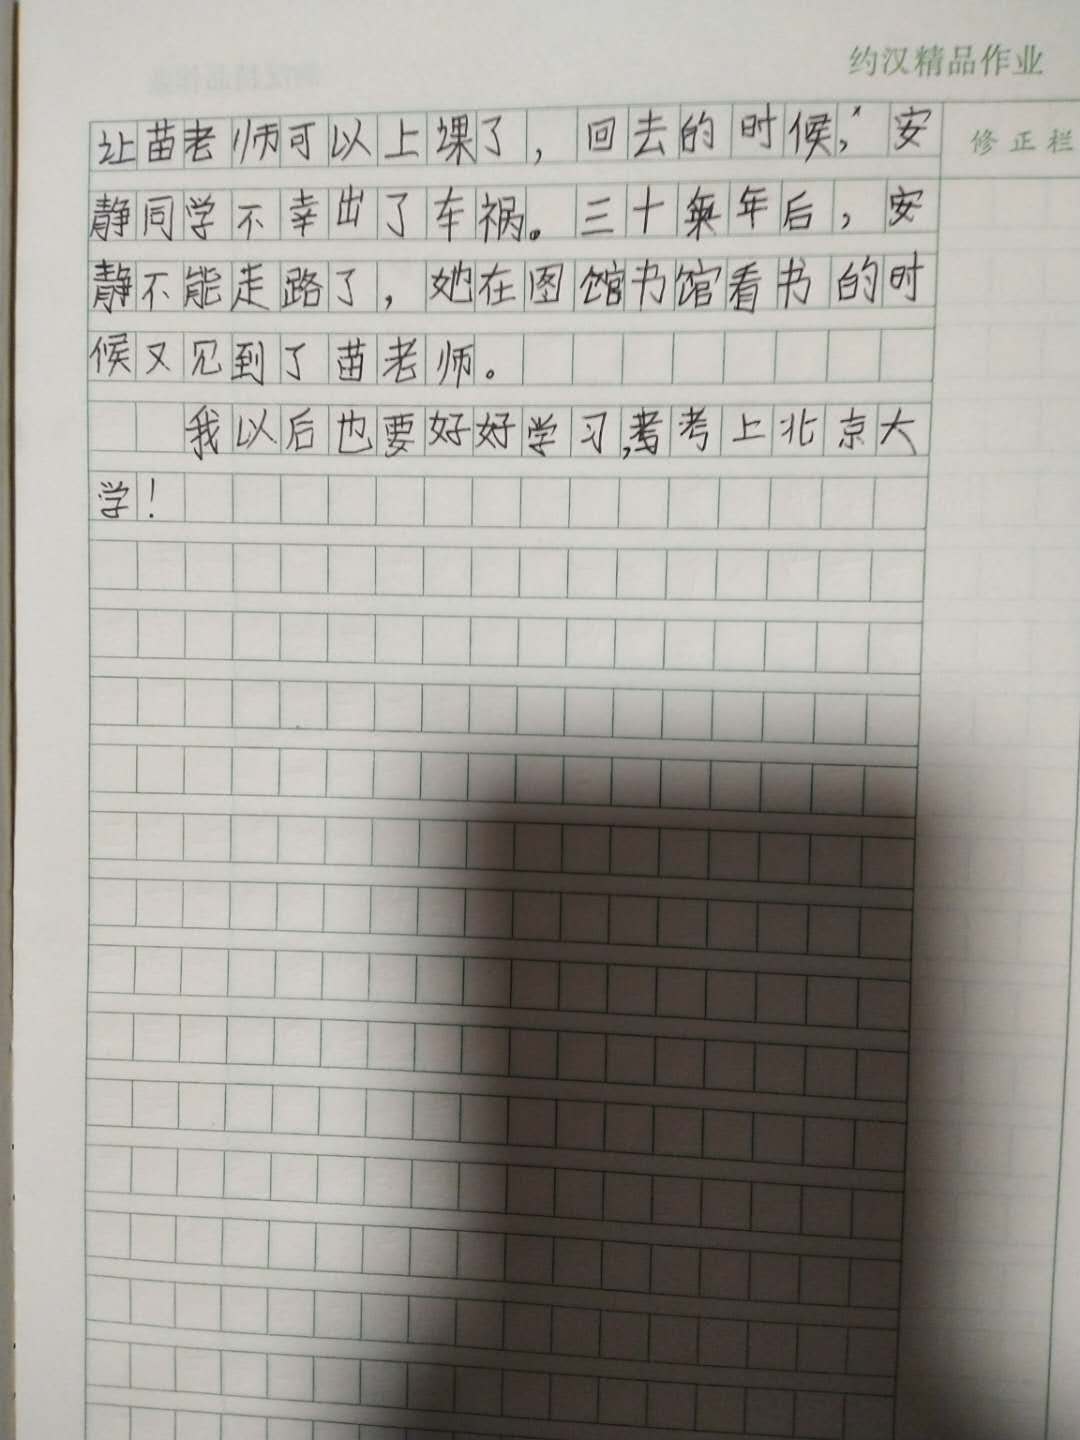 约汉精品作业
修正栏
让苗老师可以上课了，回去的时候，安
静同学不幸出了车祸。三十年后，安
静不能走路了，她在图馆书馆看书的时
候又见到了苗老师。
我以后也要好好学习,考考上北京大
学！